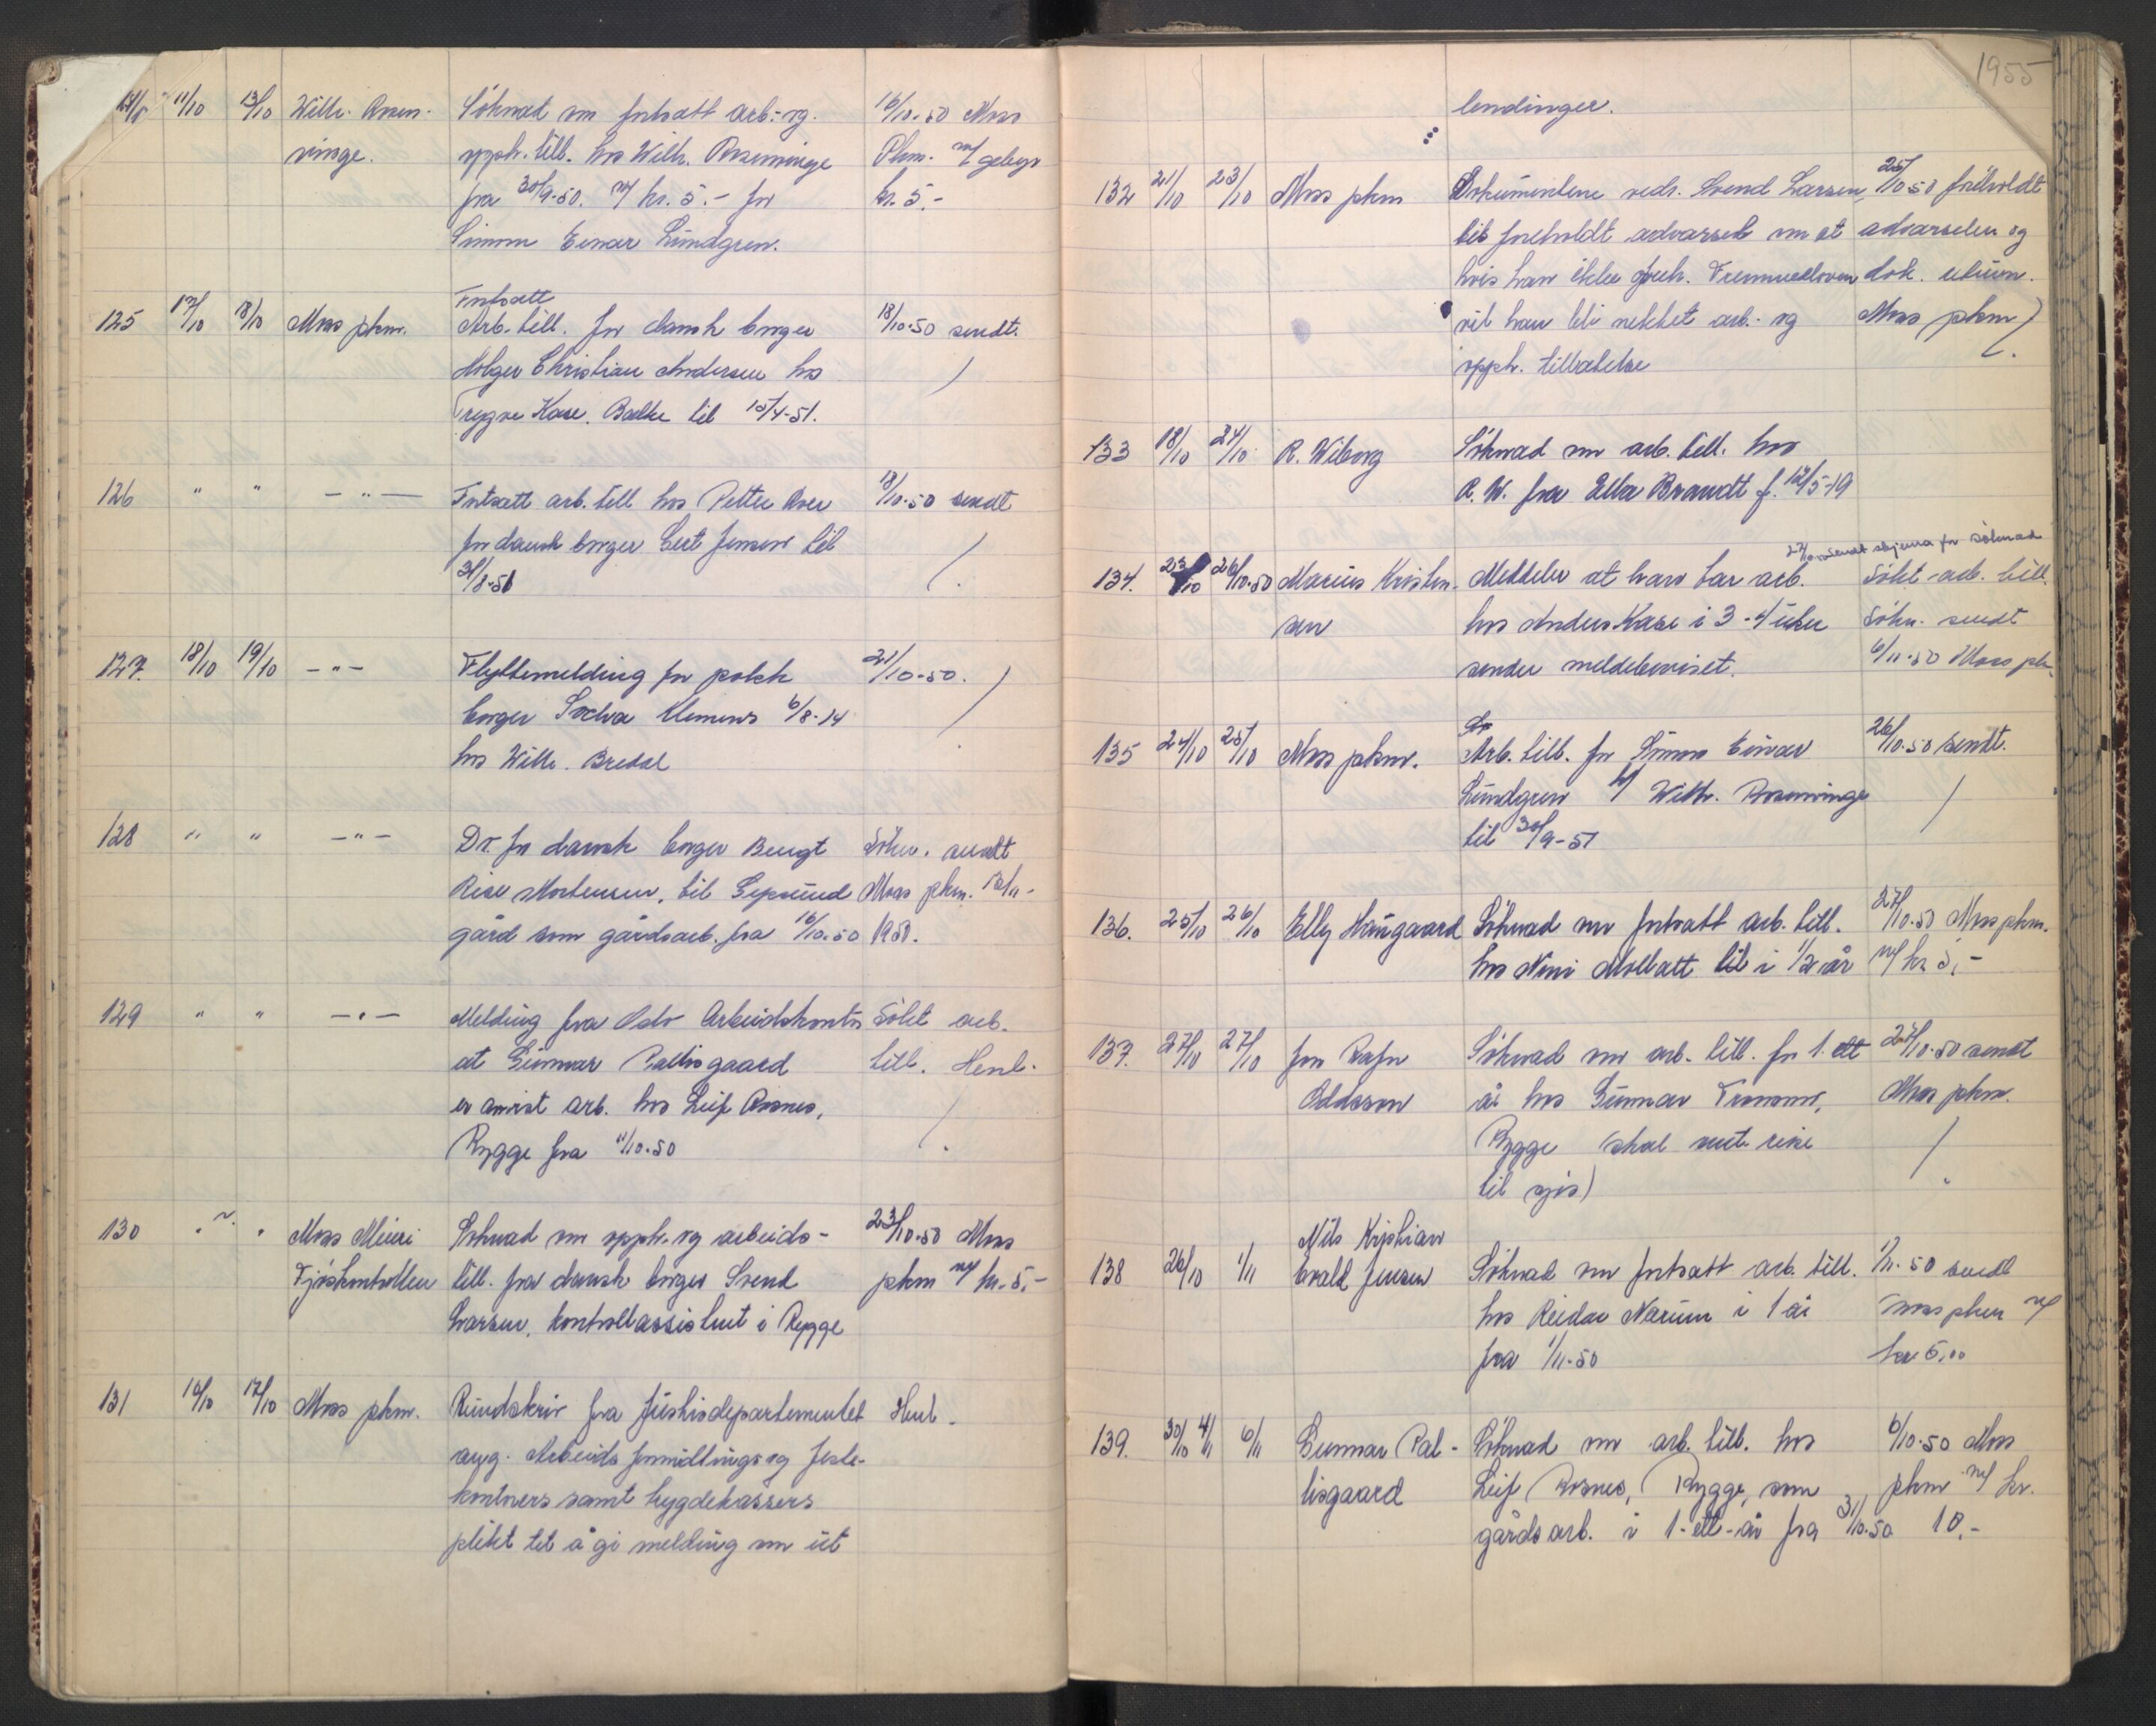 11/10 13/10 Wilh. Rosen- Söknad om fortsatt arb.- og 16/10-50 Moss
vinge. opph. till. hos Wilh. Rosenvinge Pkm. m/ gebyr
fra 30/9-50. m/ kr. 5.- for kr. 5.-
Simon Einar Lundgren.
Fortsatt
125 17/10 18/10 Moss pkm. Arb. till. for dansk borger 18/10-50 sendt.
Holger Christian Andersen hos
Trygve Kase. Balke til 15/4-51.
126 " " - " - Fortsatt arb. till hos Petter Roer 18/10-50 sendt
for dansk borger Gert Jensen til
31/8-51
127. 18/10 19/10 - " - Flyttemelding for polsk 21/10-50.
borger Klemens 6/8-14
hos Wilh. Bredal
128 " " - " - Do. for dansk borger Bengt Sökn. sendt
Rise Mortensen, til Gipsund Moss pkm.
gård som gårdsarb. fra 16/10-50 1950.
129 " " - " - Melding fra Oslo Arbeidskontor Sökt arb.
at Gunnar Pallisgaard till. Henl.
er anvist arb. hos Leif Rosnes,
Rygge fra 11/10-50
130 " " Moss Meieri Söknad om opph. og arbeids- 23/10-50 Moss
Fjöskontrollen till. fra dansk borger Svend pkm m/ kr. 5,-
Larsen, kontrollassistent i Rygge
131 16/10 17/10 Moss pkm. Rundskriv fra Justisdepartementet Henl.
ang. Arbeidsformidlings og feste-
kontorers samt trygdekassers
plikt til å gi melding om ut
1955
lendinger.
132 21/10 23/10 Moss pkm Dokumentene vedr. Svend Larsen, 25/10 50 foreholdt
bli foreholdt advarsel om at advarselen og
hvis han ikke overh. Fremmedloven dok. return.
vil han bli nektet arb.- og Moss pkm
opph. tillatelse
133 18/10 24/10 R. Wiborg Söknad om arb. till. hos
R. W. fra Ella Brandt f. 12/5-19
27/10 sendt skjema for söknad
134. 23/10 26/10-50 Marius Kristen- Meddeler at han har arb. Sökt arb. till.
sen hos Anders Kase i 3-4 uker Sökn. sendt
sender meldebeviset. 6/11-50 Moss pk.
135 24/10 25/10 Moss pkm. Arb. till. for Simon Einar 26/10-50 sendt.
Lundgren h/ Wilh. Rosenvinge
til 30/9-51
136. 25/10 26/10 Elly Haugaard Söknad om fortsatt arb. till. 27/10-50 Moss pkm.
hos Nini Mollatt til i 1/2 år m/ kr 5,-
137. 27/10 27/10 Jon Rafn Söknad om arb. till. for 1 ett 27/10-50 sendt
Oddsson år hos Gunnar Tronsmo, Moss pkm.
Rygge (skal reise
til sjös)
Nils Kristian
138 26/10 1/11 Evald Jensen Söknad om fortsatt arb. till. 1/11-50 sendt
hos Reidar Narum i 1 år Moss pkm m/
fra 1/11-50 kr 5,00
139. 30/10 4/11 6/11 Gunnar Pal- Söknad om arb. till. hos 6/10-50 Moss
lisgaard Leif Rosnes, Rygge, som pkm m/ kr.
gårdsarb. i 1-ett-år fra 31/10-50 10,-